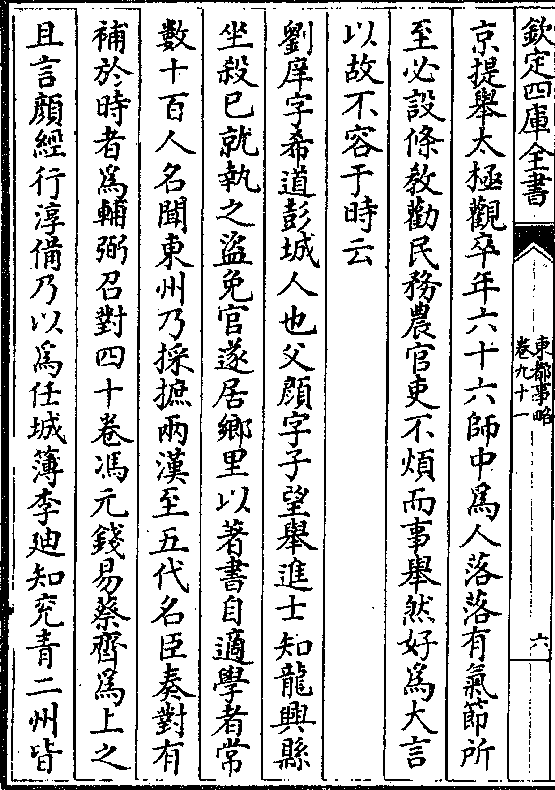 欽定四庫全書
東都事略
卷九十一
六
京提舉太極觀卒年六十六師中為人落落有氣節所
至必設條教勸民務農官吏不煩而事舉然好為大言
以故不容于時云
劉庠字希道彭城人也父顔字子望舉進士知龍興縣
坐殺已就執之盜免官遂居鄉里以著書自適學者常
數十百人名聞東州乃採摭兩漢至五代名臣奏對有
補於時者為輔弼召對四十卷馮元錢易蔡齊為上之
且言顔經行淳備乃以為任城簿李廸知兖青二州皆